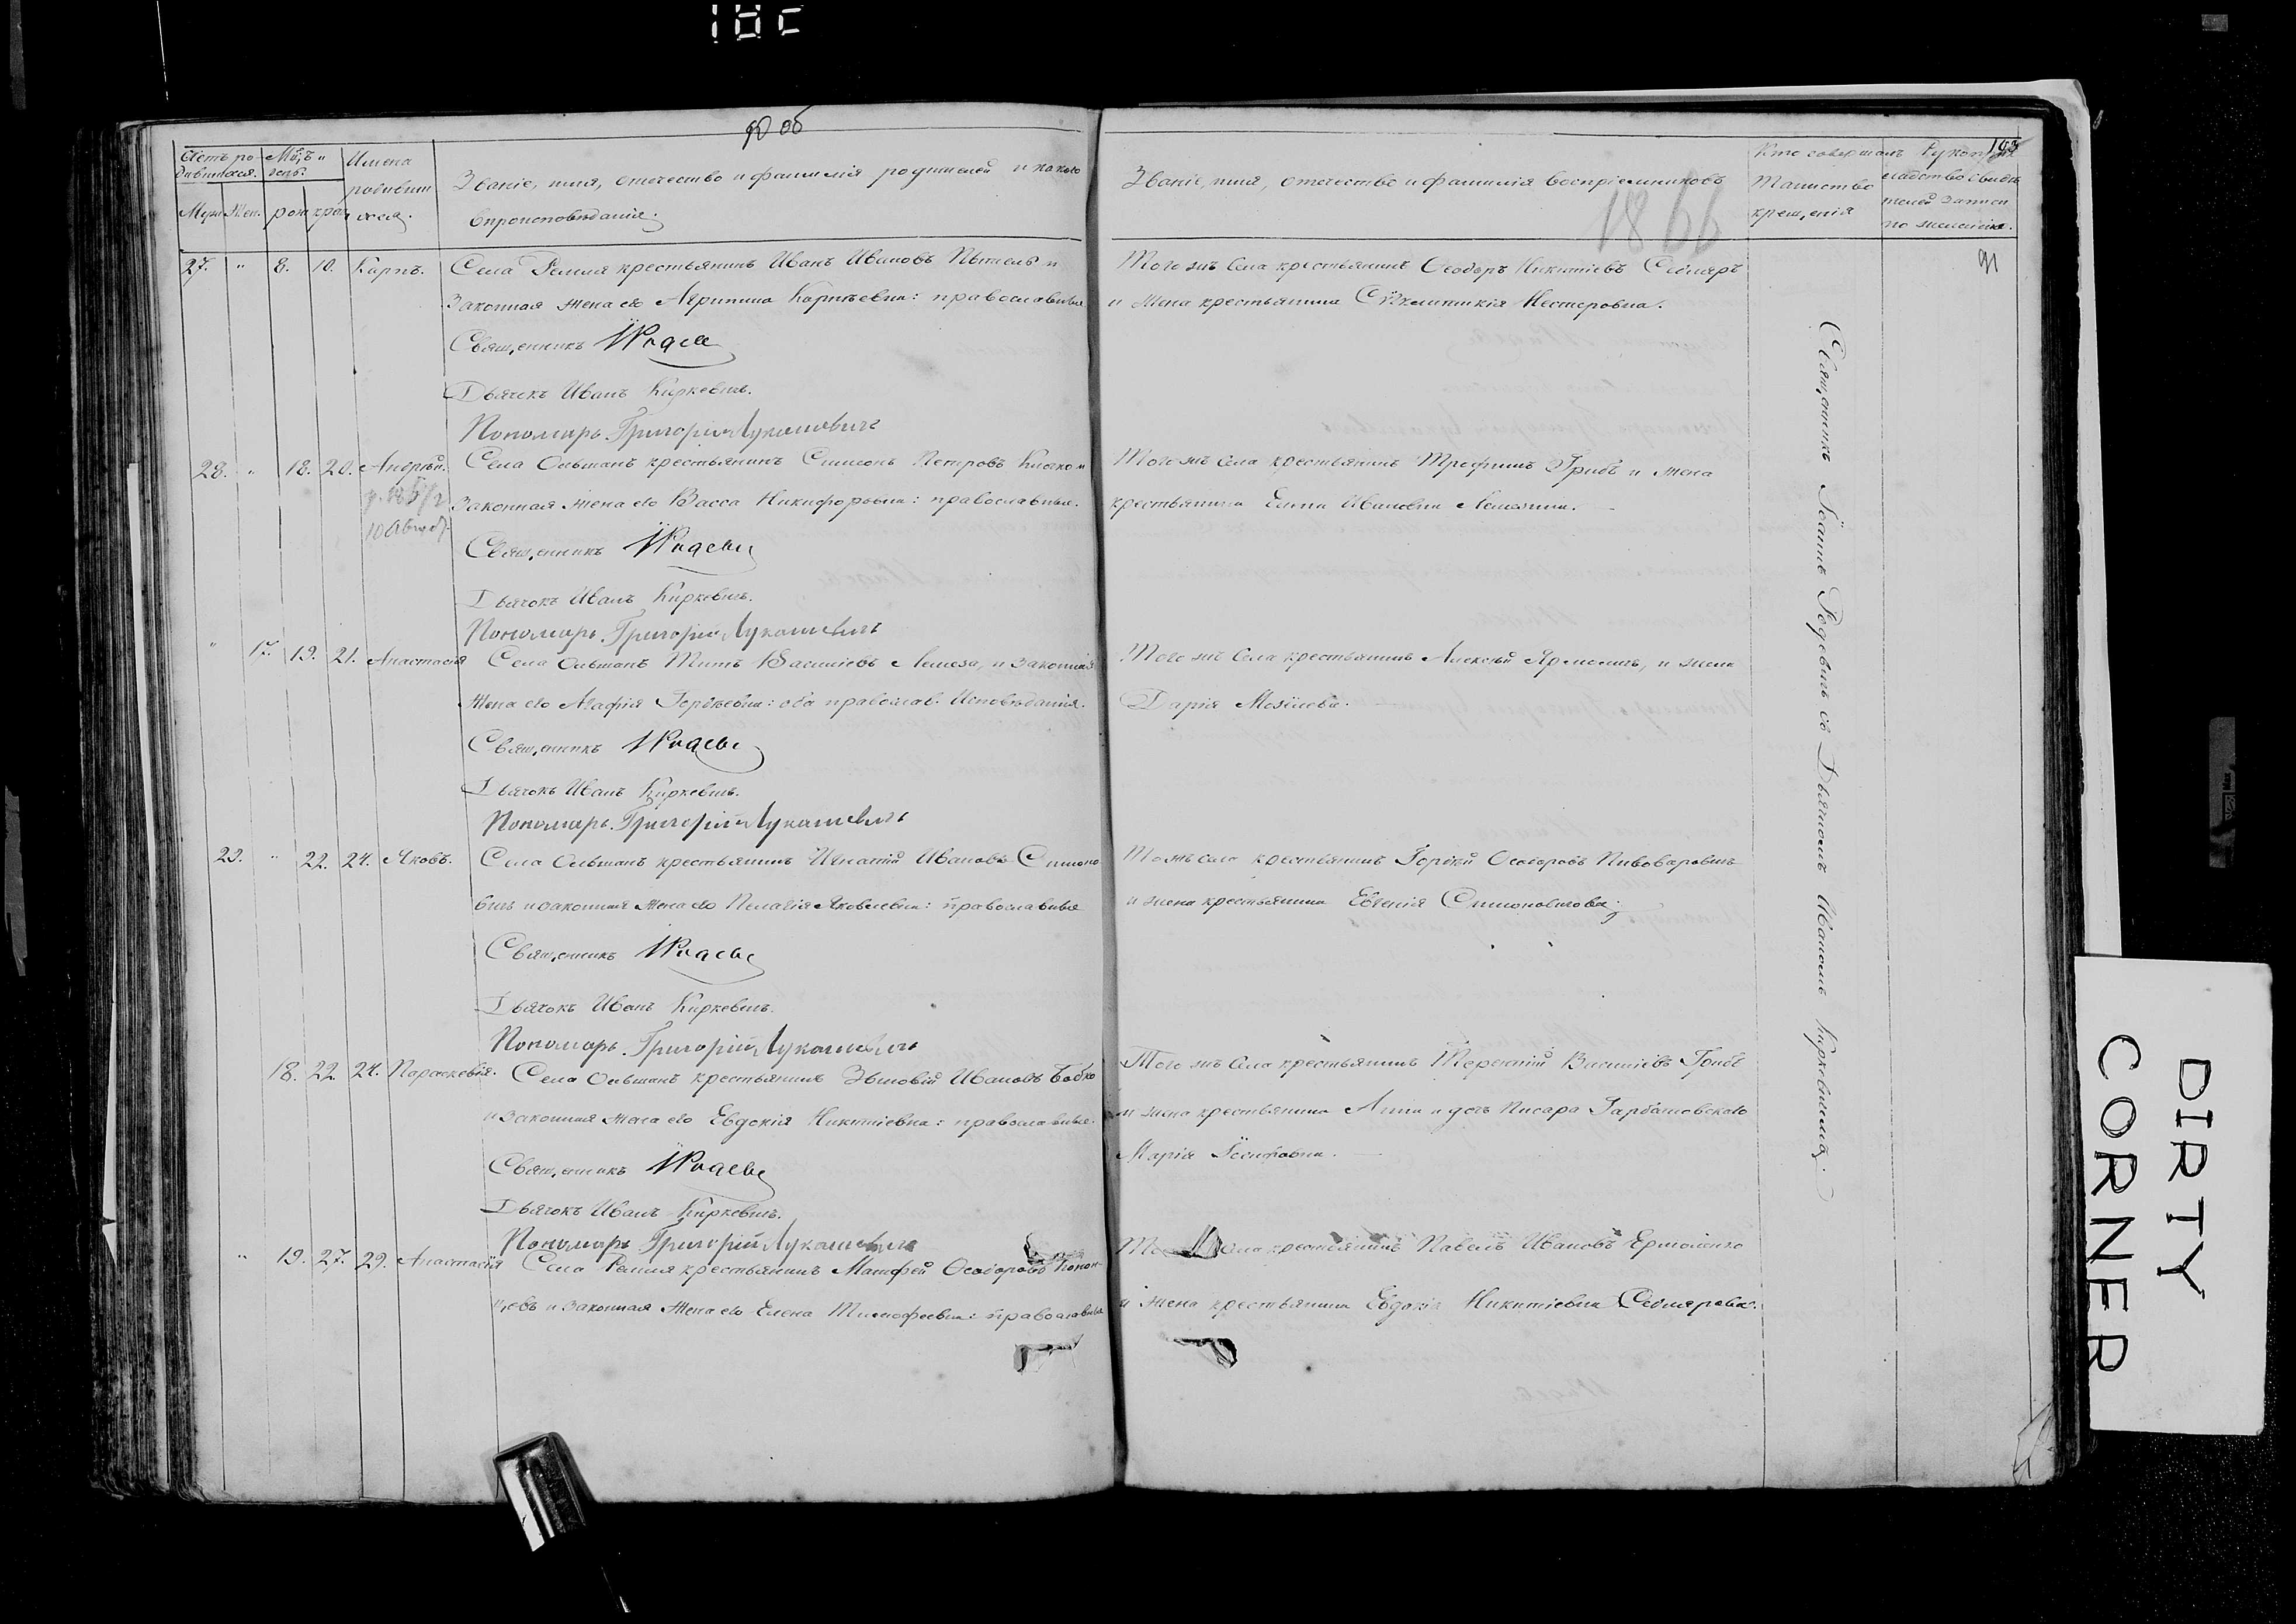 90 об
Счетъ ро-
дившихся.
Муж. Жен.
Мѣс,ъ и
день.
рож. крещ.
Имена
родивши
хся.
Званіе, имя, отчество и фамилія родителей и какого
вѣроисповѣданія.
Званіе, имя, отчество и фамилія воспріемниковъ
1866
Кто совершалъ
Таинство
крещ,енія
Рукопри
кладство свидѣ
телей записи
по желанію.
91
27. " 8. 10. Карпъ. Села крестьянинъ Иванъ Ивановъ и
законная жена его Агрипина Карпѣевна: православные
Свящ,енникъ
Дьячекъ Иванъ Киркевичъ.
Пономарь Григорій Лукашевичъ
Того жъ села крестьянинъ Ѳеодоръ Никитіевъ Семляръ
и жена крестьянина Нестеровна.
28. " 18. 20. Андрей. Села Ольшанъ крестьянинъ Симеонъ Петровъ и
законная жена его Васса Никифоровна: православные.
Свящ,енникъ
Дьячокъ Иванъ Киркевичъ.
Пономарь Григорій Лукашевичъ
Того жъ села крестьянинъ Трофимъ Грибъ и жена
крестьянина Елена Ивановна
" 17. 19. 21. Анастасія Села Ольшанъ Титъ Василіевъ Лемеза, и законная
жена его Агафія Гордѣевна: оба православ. Исповѣданія.
Свящ,енникъ
Дьячокъ Иванъ Киркевичъ.
Пономарь Григорій Лукашевичъ
Того жъ села крестьянинъ Алексѣй и жена
Дарія Моѵсіева.
29. " 22. 24. Яковъ. Села Ольшанъ крестьянинъ Игнатій Ивановъ Симоно
вичъ и законная жена его Пелагія Яковлевна: православные
Свящ,енникъ
Дьячокъ Иванъ Киркевичъ.
Пономарь Григорій Лукашевичъ
Тогожъ села крестьянинъ Гордѣй Ѳеодоровъ Пивоваровичъ
и жена крестьянина Евгенія Симоновичова.
18. 22. 24. Параскевія. Села Ольшанъ крестьянинъ Зѣновій Ивановъ Бобко
и законная жена его Евдокія Никитіевна: православные.
Свящ,енникъ
Дьячокъ Иванъ Киркевичъ.
Пономарь Григорій Лукашевичъ
Того жъ села крестьянинъ Терентій Василіевъ Грибъ
и жена крестьянина Анна и дочь писара Гарбатовского
Марія Іосифовна.
" 19. 27. 29. Анастасія Села крестьянинъ Матфей Ѳеодоровъ Конон-
цевъ и законная жена его Елена Тимофеевна: православные
села крестьянинъ Павелъ Ивановъ Ермоленко
и жена крестьянина Евдокія Никитіевна Семлярова.
Священникъ Іоаннъ Родевичъ съ Дьячкомъ Иваномъ Киркевичемъ.
DIRTY
CORNER